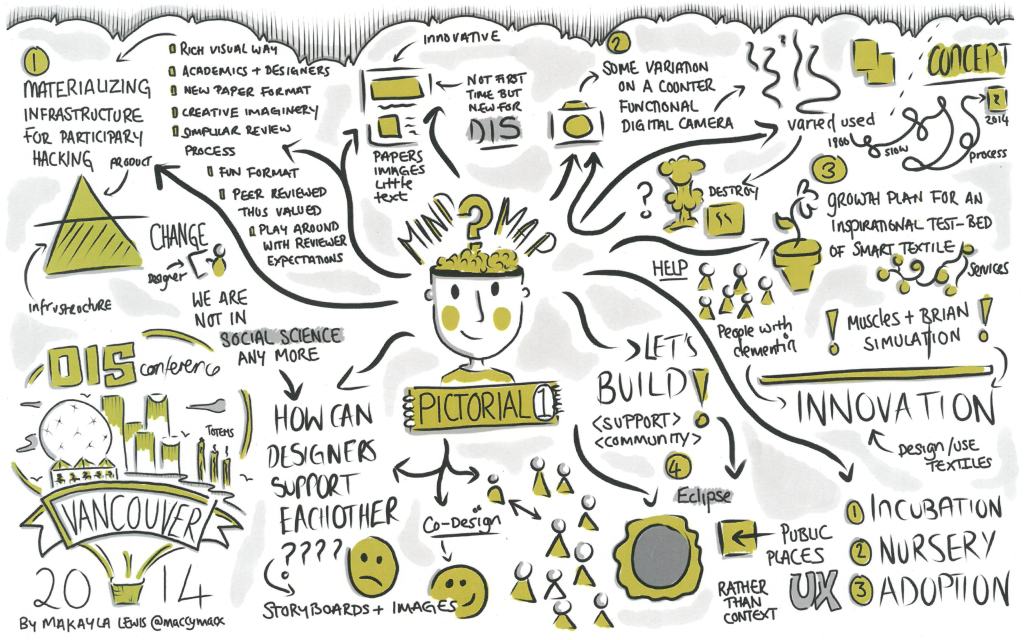 1
MATERIALIZING
INFRASTRUCTURE
FOR PARTICIPARY
HACKING
PRODUCT
INFRUSTRUCTURE
CHANGE
Designer
WE ARE
NOT IN
SOCIAL SCIENCE
ANY MORE
RICH VISUAL WAY
ACADEMICS + DESIGNERS
NEW PAPER FORMAT
CREATIVE IMAGINERY
SIMPLIAR REVIEW
PROCESS
FUN FORMAT
PEER REVIEWED
THUS VALUED
PLAY AROUND
WITH REVIEWER
EXPECTATIONS
INNOVATIVE
NOT FIRST
TIME BUT
NEW FOR
DIS
PAPERS
IMAGES
Little
text
MIND ? MAP
PICTORIAL 1
2
SOME VARIATION
ON A COUNTER
FUNCTIONAL
DIGITAL CAMERA
varied used
CONCEPT
2
2014
1800
slow
process
?
DESTROY
3
GROWTH PLAN FOR AN
INSPIRATIONAL TEST-BED
OF SMART TEXTILE
Services
HELP
People with
dementin
! MUSCLES + BRIAN !
SIMULATION
INNOVATION
DESIGN/USE
TEXTILES
1 INCUBATION
2 NURSERY
3 ADOPTION
>LET'S
BUILD!
<SUPPORT>
<COMMUNITY>
4
Eclipse
PUBLIC
PLACES
RATHER
THAN
CONTEXT
UX
HOW CAN
DESIGNERS
SUPPORT
EACHOTHER
????
STORYBOARDS + IMAGES
Co-Design
DIS conference
TOTEMS
VANCOUVER
2014
BY MAKAYLA LEWIS @maccymacx